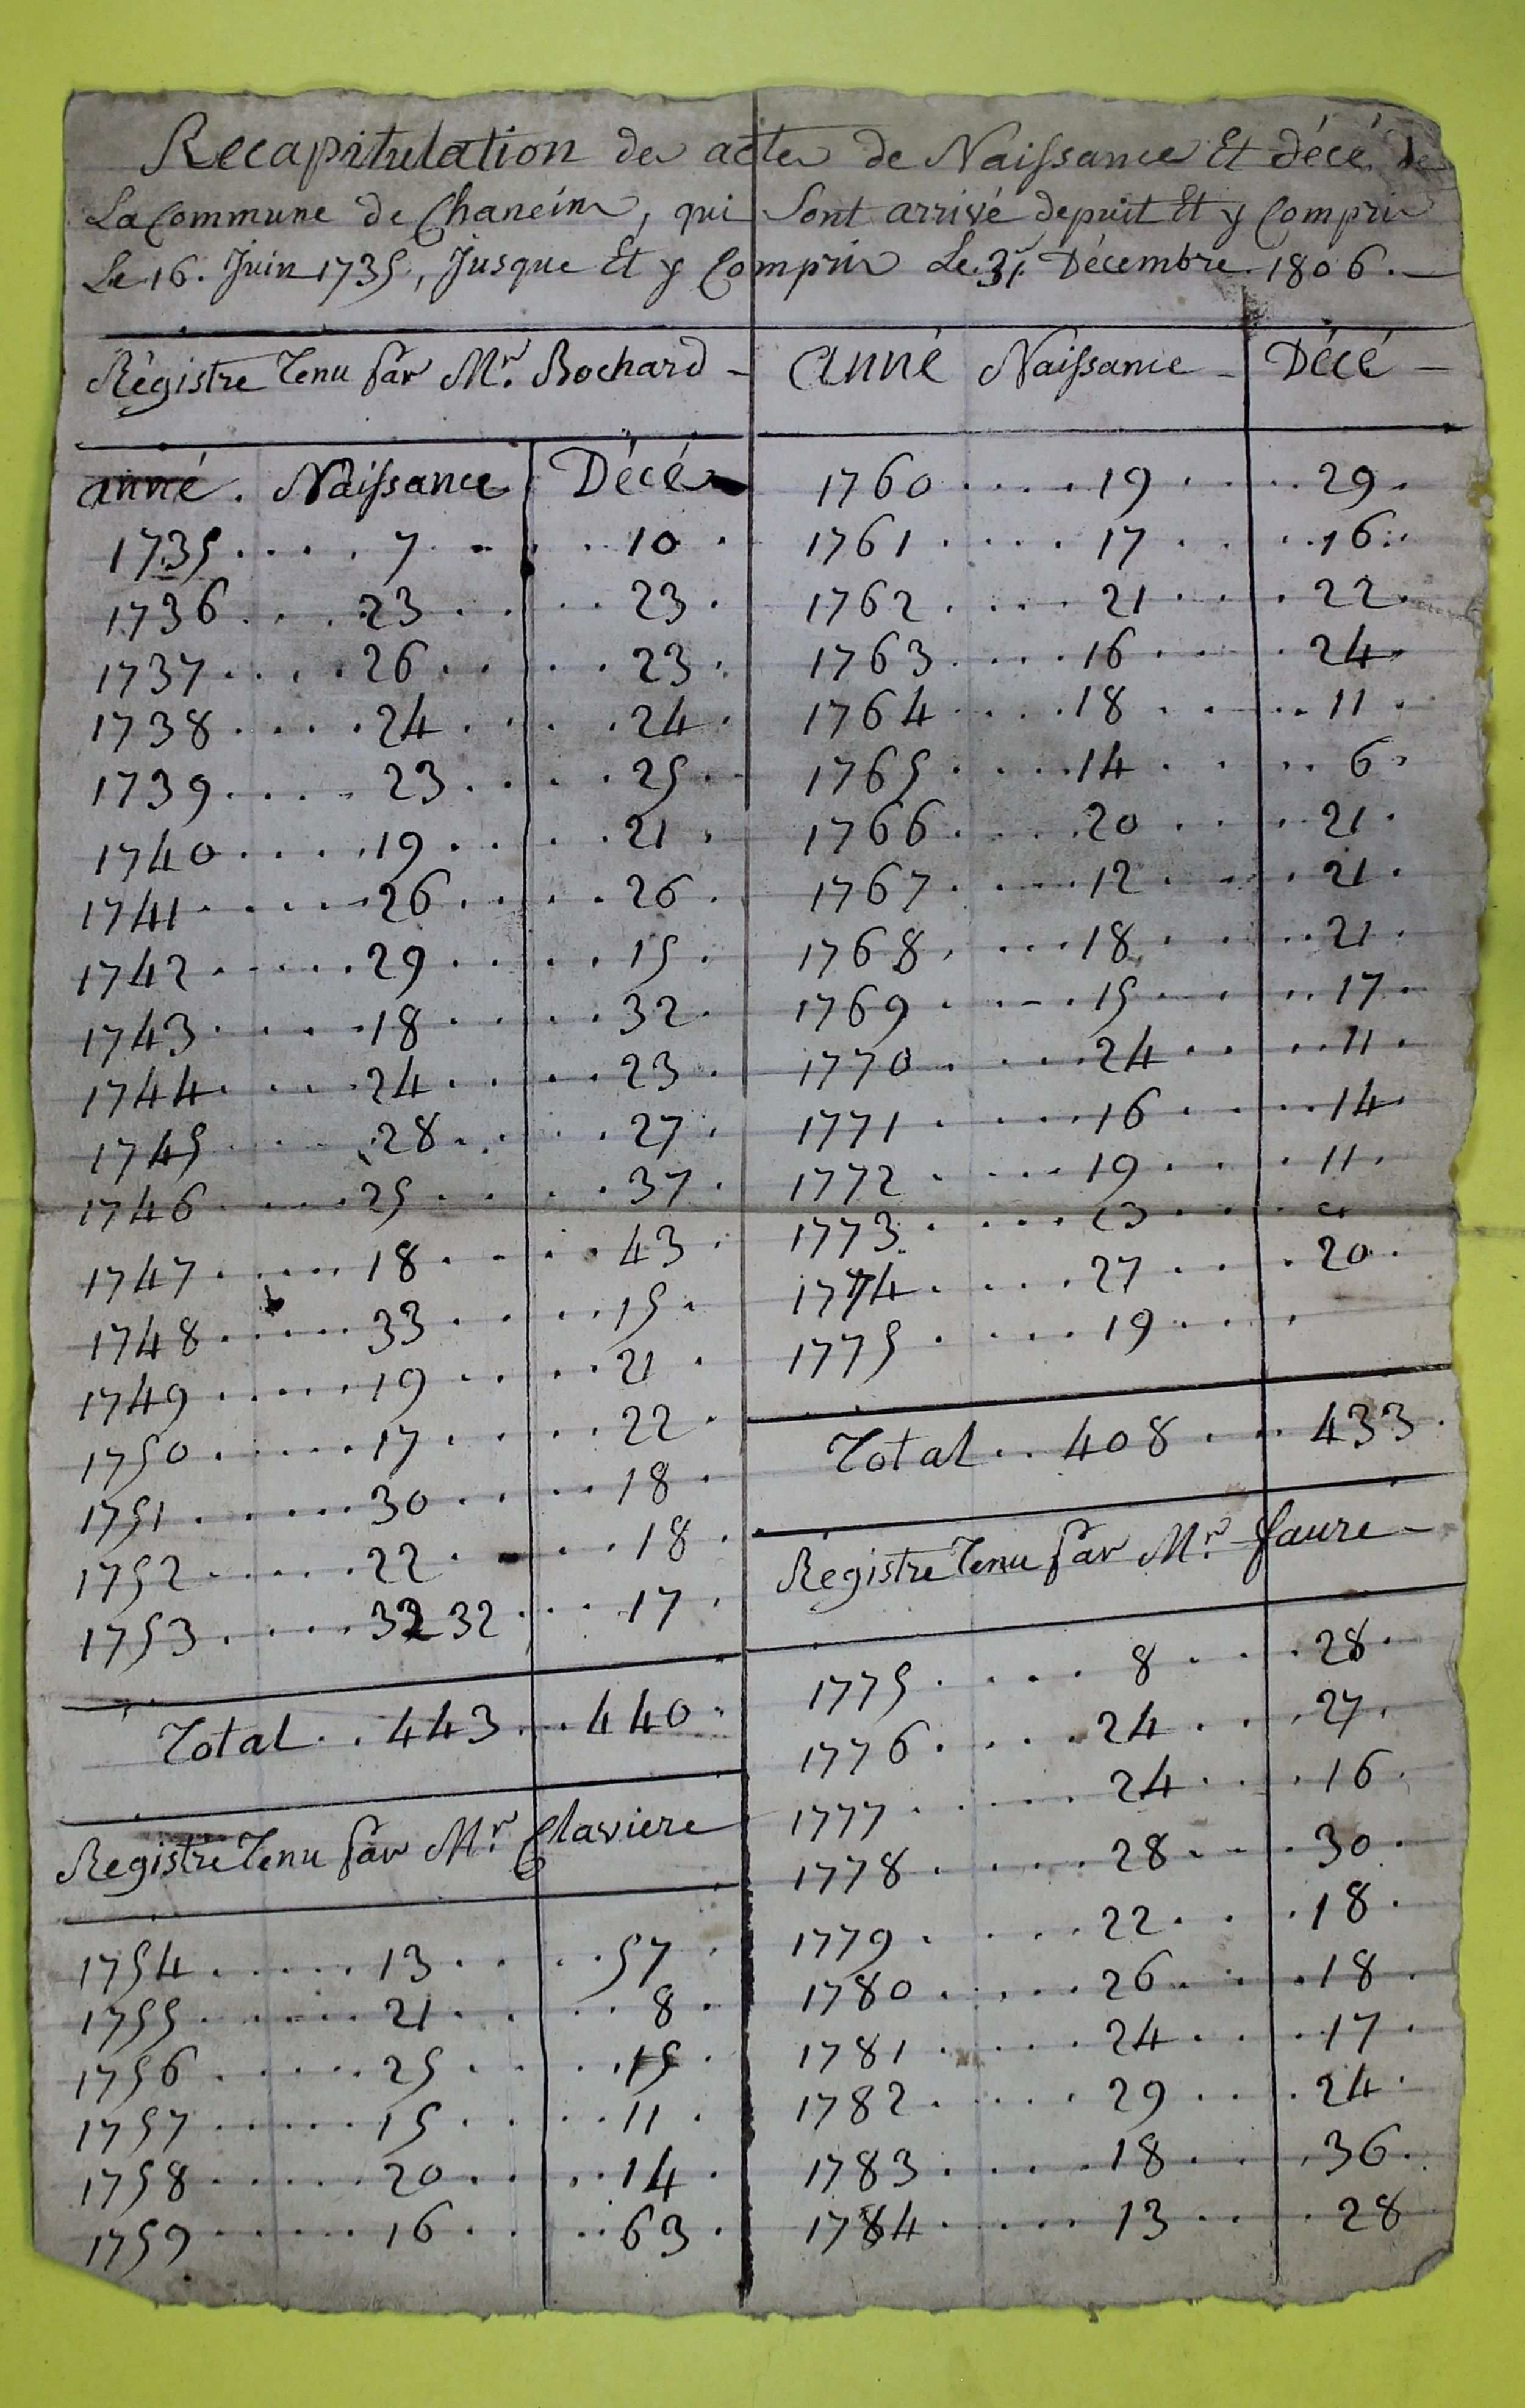 Recapitulation des actes de Naissance Et décé de
La Commune de Chaneins, qui Sont arrivé depuit Et y Compris
Le 16. Juin 1735, Jusque Et y Compris Le 31. Décembre 1806.
Régistre Tenu par Mr. Bochard
anné. Naissance Décé
1735 .... 7 .. 10
1736 ... 23 ... 23
1737 .... 26 ... 23
1738 .... 24 ... 24
1739 .... 23 ... 25
1740 .... 19 ... 21
1741 .... 26 ... 26
1742 .... 29 ... 15
1743 .... 18 ... 32
1744 .... 24 ... 23
1745 .... 28 ... 27
1746 .... 25 ... 37
1747 .... 18 ... 43
1748 .... 33 ... 15
1749 .... 19 ... 21
1750 .... 17 ... 22
1751 .... 30 ... 18
1752 .... 22 ... 18
1753 .... 32 32 ... 17
Total .. 443 ... 440
Registre Tenu par Mr. Claviere
1754 .... 13 ... 57
1755 .... 21 ... 8
1756 .... 25 ... 15
1757 .... 15 ... 11
1758 .... 20 ... 14
1759 .... 16 ... 63
Anné Naissance Décé
1760 .... 19 ... 29
1761 .... 17 ... 16
1762 .... 21 ... 22
1763 .... 16 ... 24
1764 .... 18 ... 11
1765 .... 14 ... 6
1766 .... 20 ... 21
1767 .... 12 ... 21
1768 .... 18 ... 21
1769 .... 15 ... 17
1770 .... 24 ... 11
1771 .... 16 ... 14
1772 .... 19 ... 11
1773
1774 .... 27 ... 20
1775 .... 19 ...
Total .. 408 ... 433
Régistre Tenu par Mr. faure
1775 .... 8 ... 28
1776 .... 24 ... 27
1777 .... 24 ... 16
1778 .... 28 ... 30
1779 .... 22 ... 18
1780 .... 26 ... 18
1781 .... 24 ... 17
1782 .... 29 ... 24
1783 .... 18 ... 36
1784 .... 13 ... 28